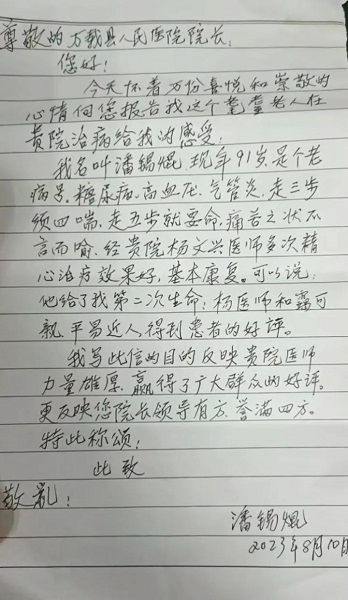 尊敬的万载县人民医院院长:
您好!
今天怀着万份喜悦和崇敬的
心情向您报告我这个耄耋老人在
贵院治病给我的感受:
我名叫潘锡焜,现年91岁,是个老
病号,糖尿病、高血压、气管炎,走三步
须四喘,走五步就要命,痛苦之状不
言而喻,经贵院杨文兴医师多次精
心治疗效果好,基本康复。可以说:
他给了我第二次生命;杨医师和蔼可
亲,平易近人,得到患者的好评。
我写此信的目的反映贵院医师
力量雄厚,赢得了广大群众的好评。
更反映您院长领导有方,誉满四方。
特此称颂!
此致
敬礼!
潘锡焜
2023年8月10日